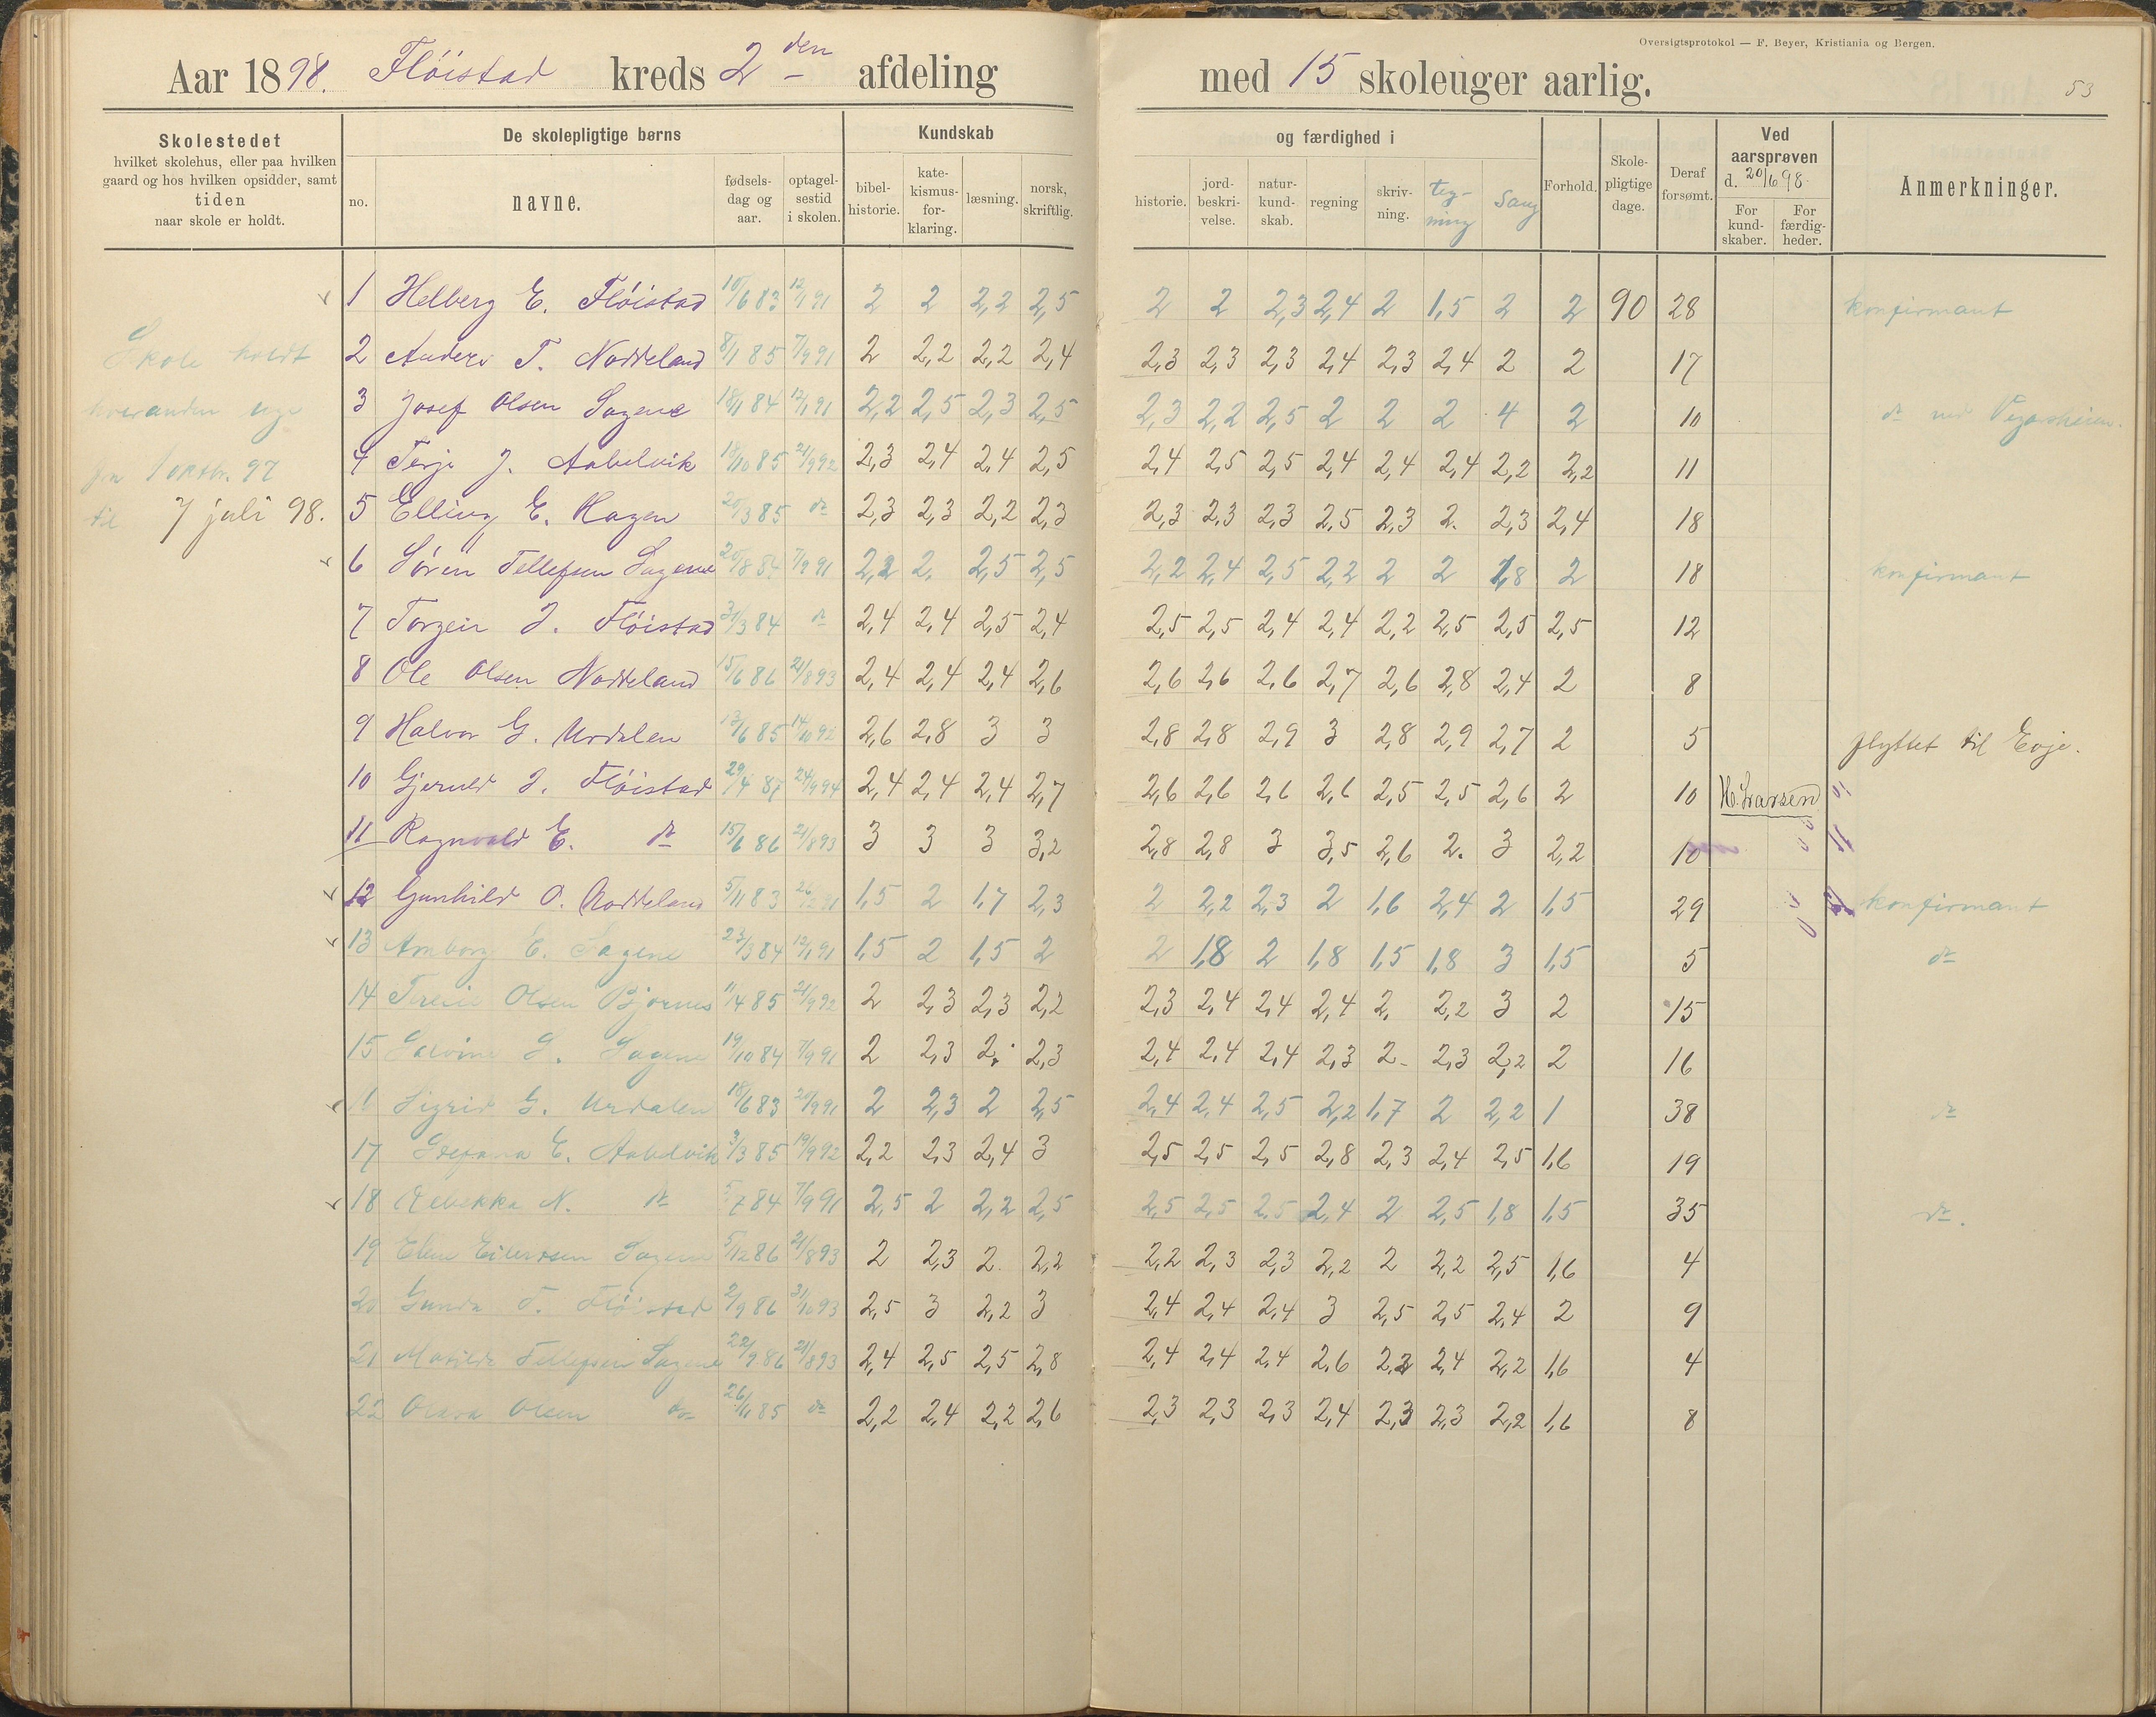 Oversigtsprotokol — F. Beyer, Kristiania og Bergen.
53
Aar 1898. Flöistad kreds 2den afdeling med 15 skoleuger aarlig.
Skolestedet hvilket skolehus, eller paa hvilken gaard og hos hvilken opsidder, samt tiden naar skole er holdt.
De skolepligtige børns
no. navne. fødselsdag og aar. optagelsestid i skolen.
Kundskab og færdighed i
bibelhistorie. katekismusforklaring. læsning. norsk, skriftlig. historie. jordbeskrivelse. naturkundskab. regning skrivning. tegning Sang
Forhold. Skolepligtige dage. Deraf forsømt.
Ved aarsprøven d. 20/6 98. For kundskaber. For færdigheder.
Anmerkninger.
Skole holdt
hveranden uge
fra 1 oktbr. 97
til 7 juli 98.
1 Helberg E. Flöistad 10/6 83 12/1 91 2 2 2,2 2,5 2 2 2,3 2,4 2 1,5 2 2 90 28 konfirmant
2 Anders T. Noddeland 8/1 85 7/9 91 2 2,2 2,2 2,4 2,3 2,3 2,3 2,4 2,3 2,4 2 2 17
3 Josef Olsen Sagene 18/1 84 12/1 91 2,2 2,5 2,3 2,5 2,3 2,2 2,5 2 2 2 4 2 10 do
4 Terje J. Aabelvik 18/10 85 21/9 92 2,3 2,4 2,4 2,5 2,4 2,5 2,5 2,4 2,4 2,4 2,2 2,2 11
5 Elling E. Hagen 20/3 85 do 2,3 2,3 2,2 2,3 2,3 2,3 2,3 2,5 2,3 2. 2,3 2,4 18
6 Sören Tellefsen Sagene 20/8 84 7/9 91 2,2 2. 2,5 2,5 2,2 2,4 2,5 2,2 2 2 1,8 2 18 konfirmant
7 Torgeir J. Flöistad 31/3 84 do 2,4 2,4 2,5 2,4 2,5 2,5 2,4 2,4 2,2 2,5 2,5 2,5 12
8 Ole Olsen Noddeland 15/6 86 21/8 93 2,4 2,4 2,4 2,6 2,6 2,6 2,6 2,7 2,6 2,8 2,4 2 8
9 Halvor G. Urdalen 13/6 85 14/10 92 2,6 2,8 3 3 2,8 2,8 2,9 3 2,8 2,9 2,7 2 5 flyttet til Evje.
10 Gjeruld J. Flöistad 29/4 87 24/9 94 2,4 2,4 2,4 2,7 2,6 2,6 2,6 2,6 2,5 2,5 2,6 2 10 H. Larsen
11 Ragnvald E. do 15/6 86 21/8 93 3 3 3 3,2 2,8 2,8 3 3,5 2,6 2. 3 2,2 10
12 Gunhild O. Noddeland 5/11 83 1,5 2 1,7 2,3 2 2,2 2,3 2 1,6 2,4 2 1,5 29 konfirmant
13 Amborg E. Sagene 23/3 84 12/1 91 1,5 2 1,5 2 2 1,8 2 1,8 1,5 1,8 3 1,5 5 do
14 Olsen Bjornes 11/4 85 21/9 92 2 2,3 2,3 2,2 2,3 2,4 2,4 2,4 2. 2,2 3 2 15
15 G. Sagene 19/10 84 7/9 91 2 2,3 2. 2,3 2,4 2,4 2,4 2,3 2- 2,3 2,2 2 16
16 Sigrid G. Urdalen 18/6 83 20/9 91 2 2,3 2 2,5 2,4 2,4 2,5 2,2 1,7 2 2,2 1 38 do
17 Stefana E. Aabelvik 3/3 85 19/9 92 2,2 2,3 2,4 3 2,5 2,5 2,5 2,8 2,3 2,4 2,5 1,6 19
18 Rebekka N. do 5/7 84 7/9 91 2,5 2 2,2 2,5 2,5 2,5 2,5 2,4 2 2,5 1,8 1,5 35 do.
19 Eilertsen Sagene 5/12 86 21/8 93 2 2,3 2. 2,2 2,2 2,3 2,3 2,2 2 2,2 2,5 1,6 4
20 Gunda T. Flöistad 2/9 86 31/10 93 2,5 3 2,2 3 2,4 2,4 2,4 3 2,5 2,5 2,4 2 9
21 Matilde Tellefsen Sagene 22/9 86 21/8 93 2,4 2,5 2,5 2,8 2,4 2,4 2,4 2,6 2,2 2,4 2,2 1,6 4
22 Olava Olsen do 26/11 85 do 2,2 2,4 2,2 2,6 2,3 2,3 2,3 2,4 2,3 2,3 2,2 1,6 8